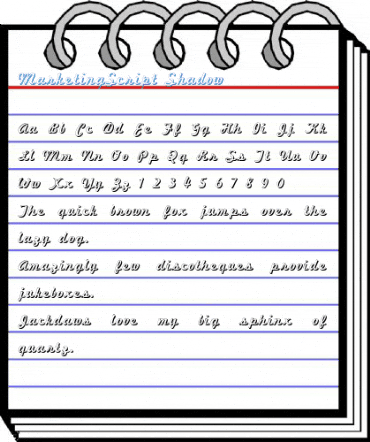 MarketingScript Shadow
Aa Bb Cc Dd Ee Ff Gg Hh Ii Jj Kk
Ll Mm Nn Oo Pp Qq Rr Ss Tt Uu Vv
Ww Xx Yy Zz 1 2 3 4 5 6 7 8 9 0
The quick brown fox jumps over the
lazy dog.
Amazingly few discotheques provide
jukeboxes.
Jackdaws love my big sphinx of
quartz.